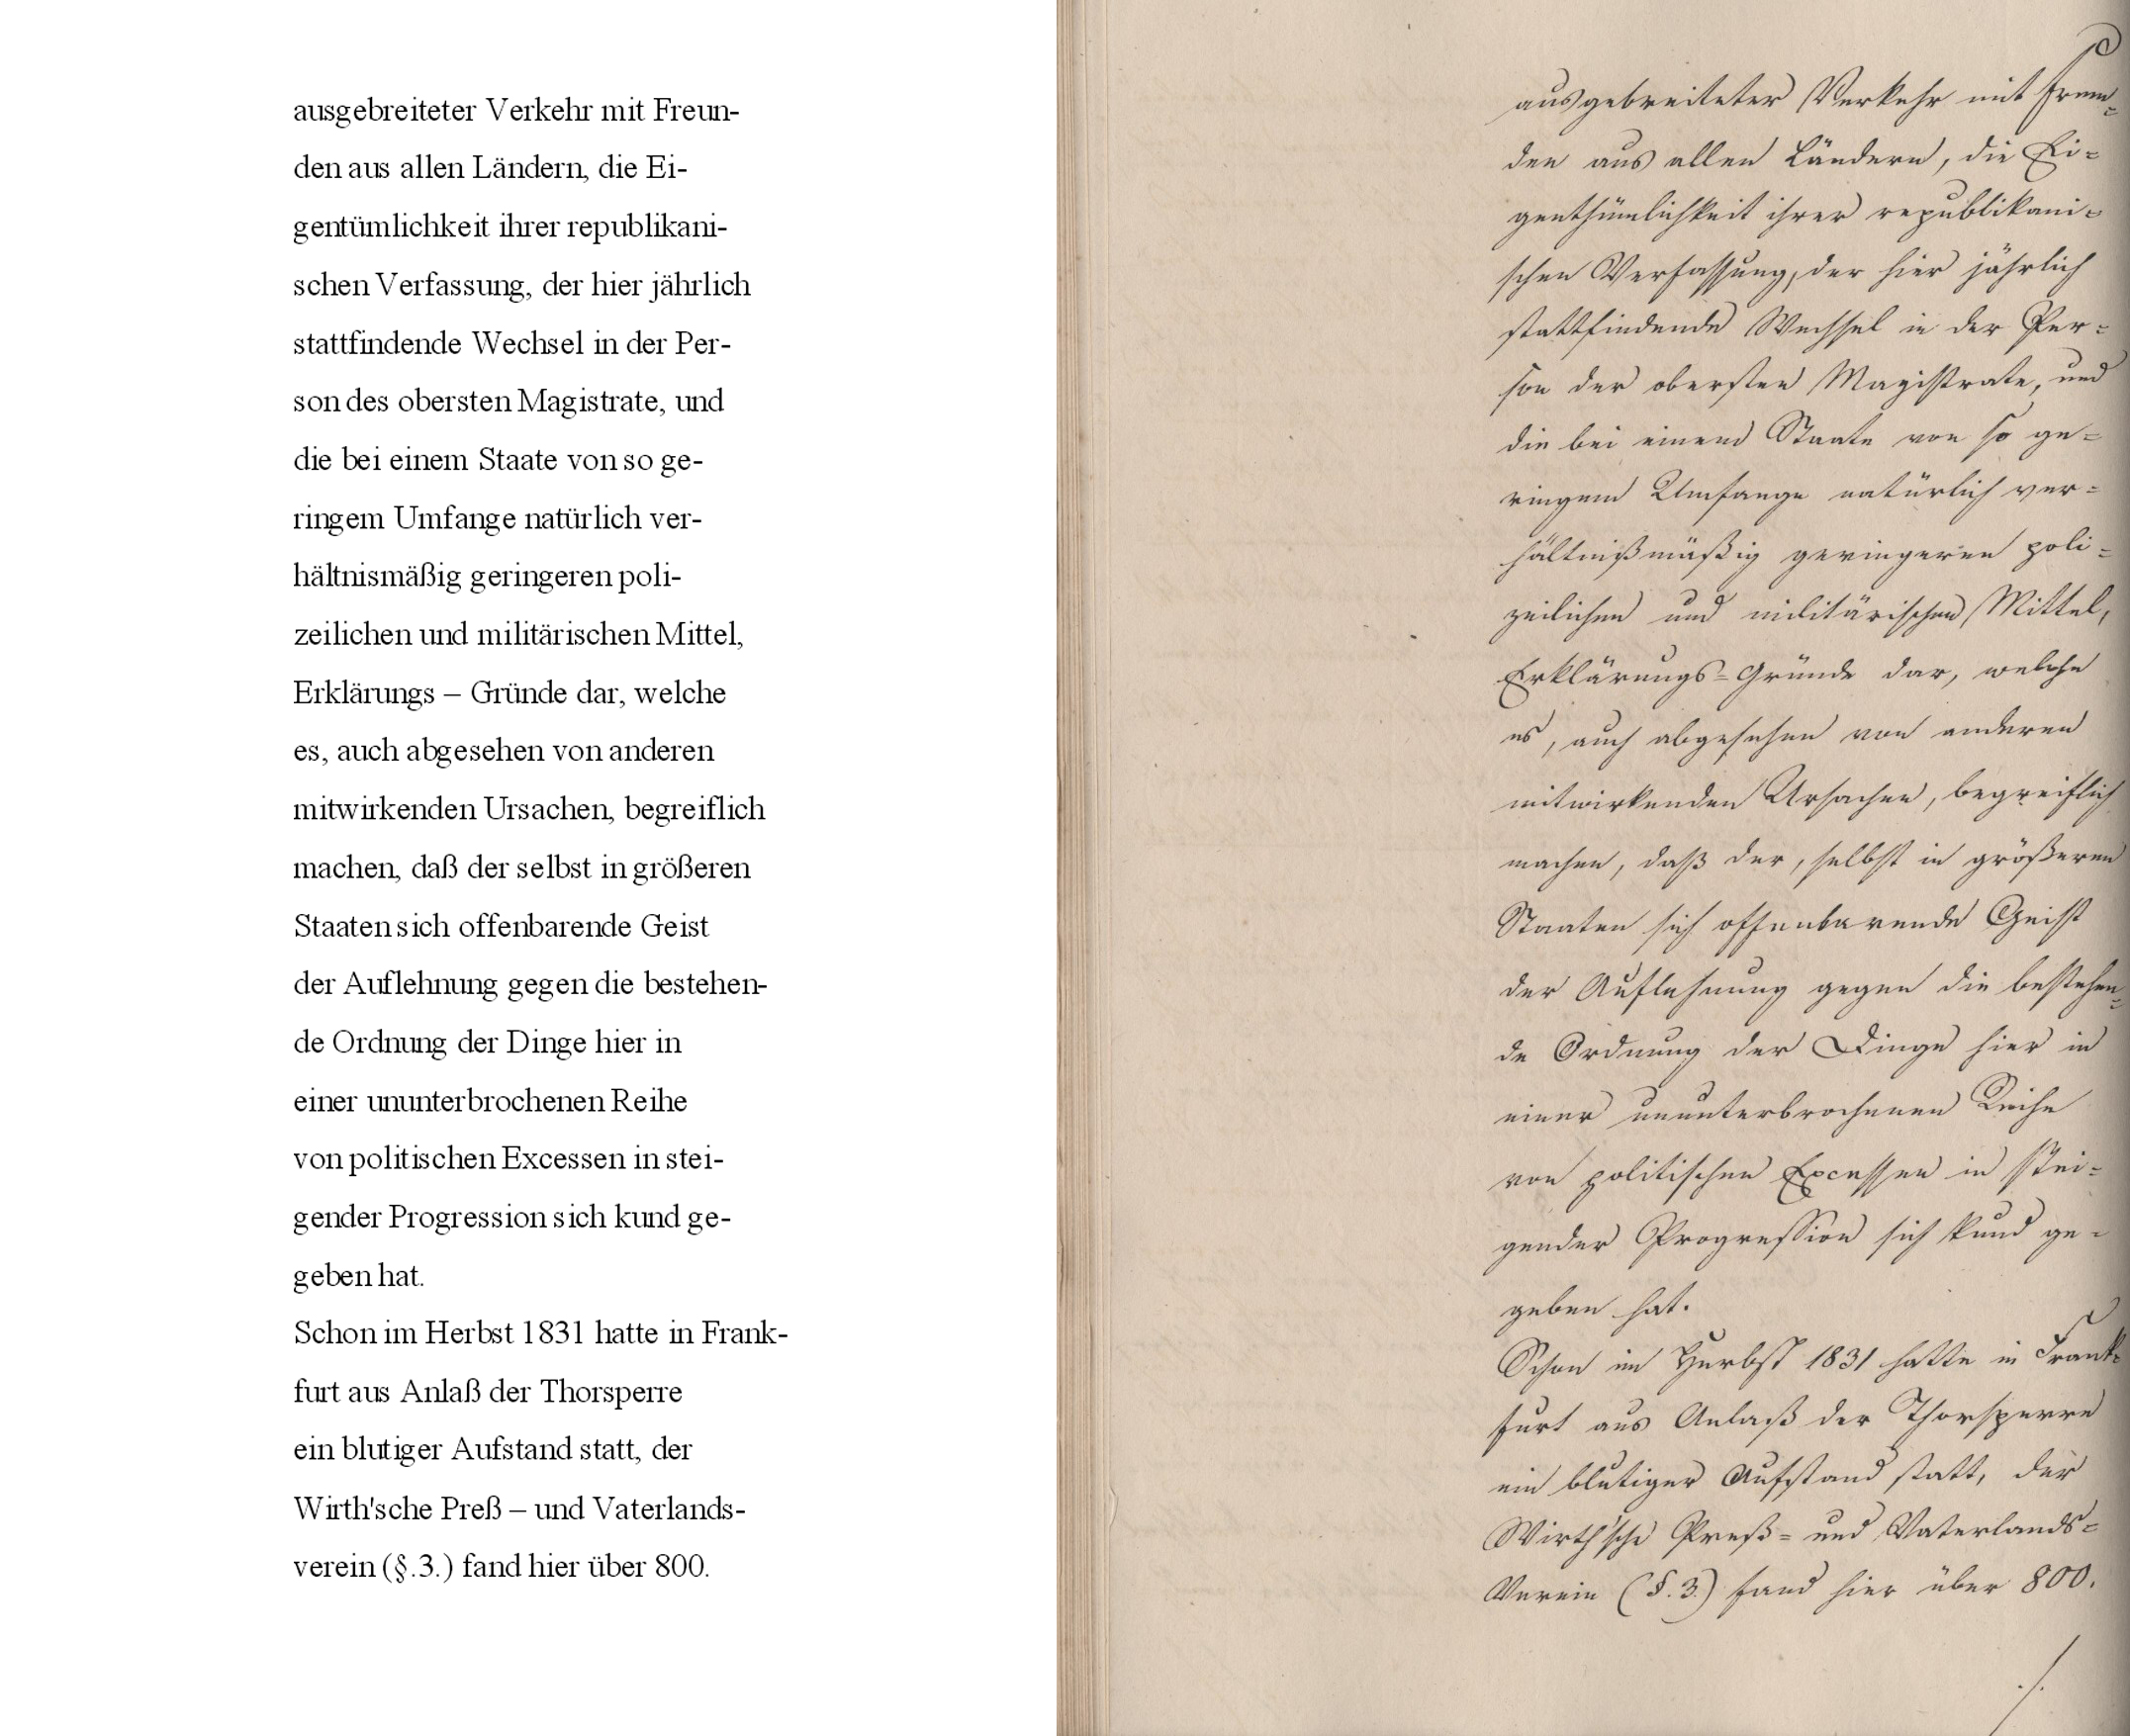 ausgebreiteter Verkehr mit Freun-
den aus allen Ländern, die Ei-
gentümlichkeit ihrer republikani-
schen Verfassung, der hier jährlich
stattfindende Wechsel in der Per-
son des obersten Magistrate, und
die bei einem Staate von so ge-
ringem Umfange natürlich ver-
hältnismäßig geringeren poli-
zeilichen und militärischen Mittel,
Erklärungs – Gründe dar, welche
es, auch abgesehen von anderen
mitwirkenden Ursachen, begreiflich
machen, daß der selbst in größeren
Staaten sich offenbarende Geist
der Auflehnung gegen die bestehen-
de Ordnung der Dinge hier in
einer ununterbrochenen Reihe
von politischen Excessen in stei-
gender Progression sich kund ge-
geben hat.
Schon im Herbst 1831 hatte in Frank-
furt aus Anlaß der Thorsperre
ein blutiger Aufstand statt, der
Wirth'sche Preß – und Vaterlands-
verein (§.3.) fand hier über 800.
ausgebreiteter Verkehr mit Frem=
den aus allen Ländern, die Ei=
genthümlichkeit ihrer republikani=
schen Verfassung, der hier jährlich
stattfindende Wechsel in der Per=
son der obersten Magistrate, und
die bei einem Staate von so ge=
ringem Umfange natürlich ver=
hältnißmäßig geringeren poli=
zeilichen und militärischen Mittel,
Erklärungs=Gründe dar, welche
es, auch abgesehen von anderen
mitwirkenden Ursachen, begreiflich
machen, daß der, selbst in größeren
Staaten sich offenbarende Geist
der Auflehnung gegen die bestehen=
de Ordnung der Dinge hier in
einer ununterbrochenen Reihe
von politischen Excessen in stei=
gender Progression sich kund ge=
geben hat.
Schon im Herbst 1831 hatte in Frank=
furt aus Anlaß der Thorsperre
ein blutiger Aufstand statt, der
Wirth'sche Preß= und Vaterlands=
Verein (§.3.) fand hier über 800.
./.